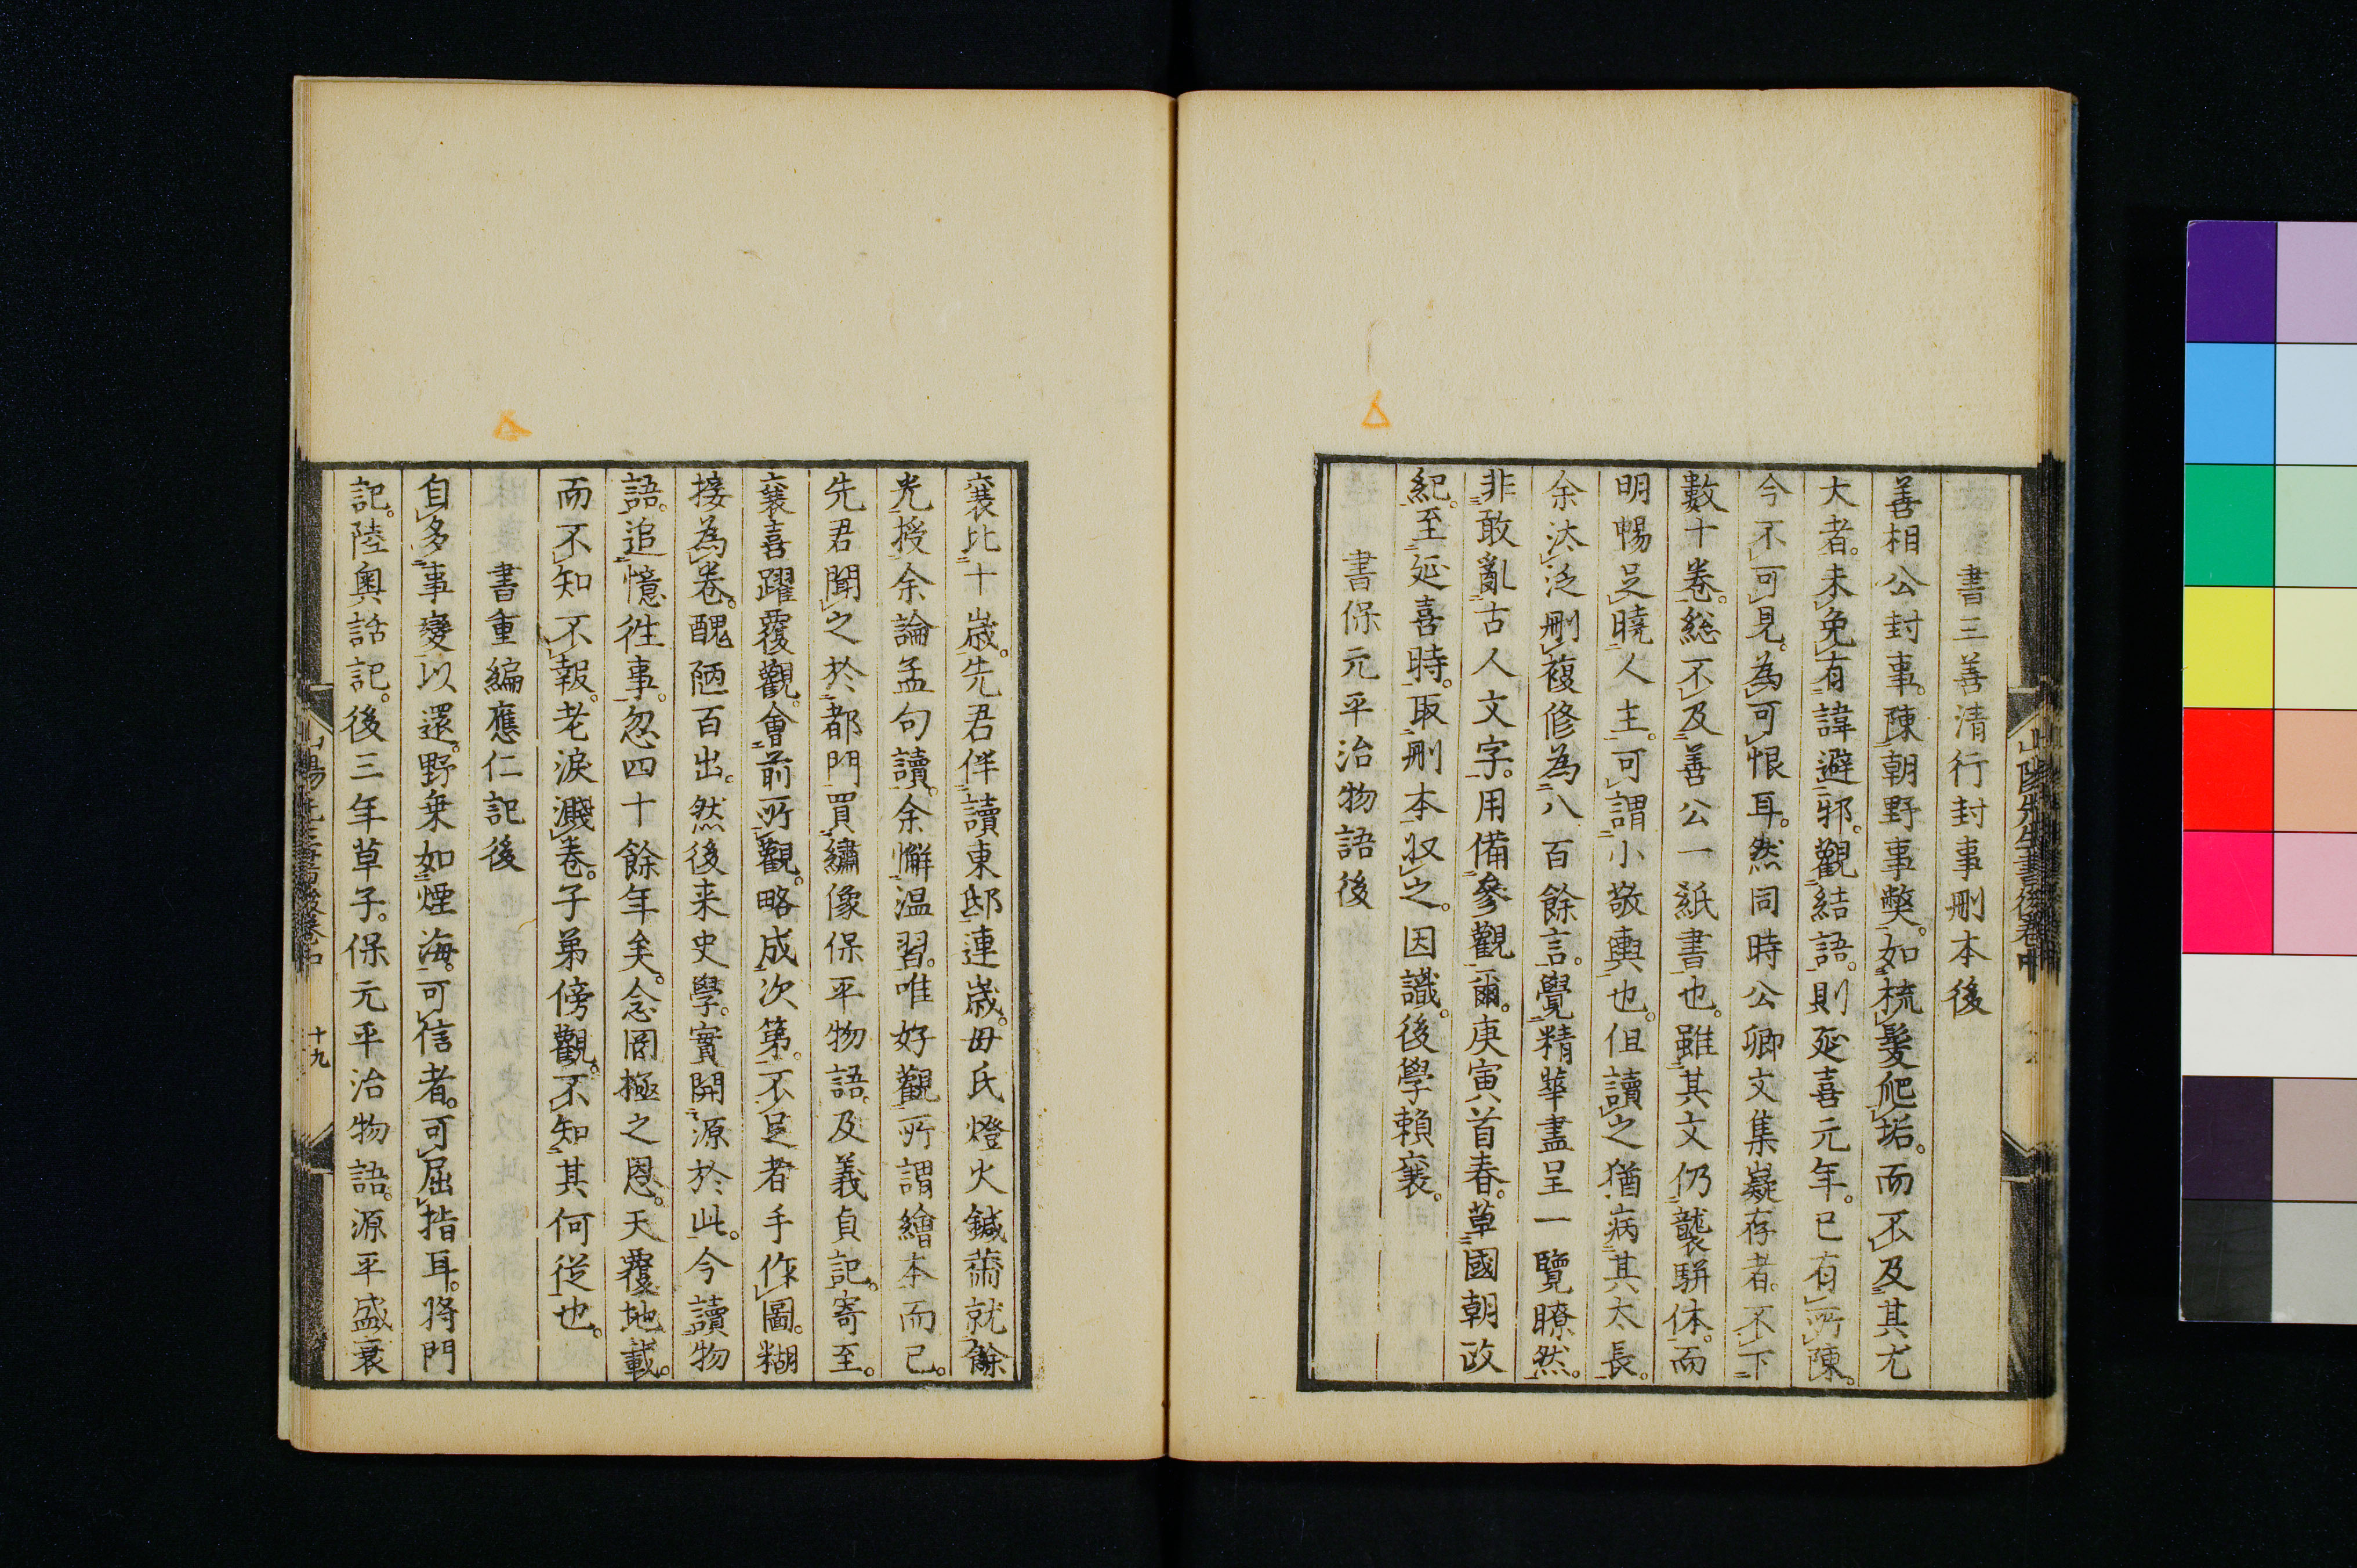 書三善清行封事刪本後
善相公封事。陳朝野事弊。如梳髮爬垢。而不及其尤
大者。未免有諱避邪。觀結語。則延喜元年。已有所陳。
今不可見。為可恨耳。然同時公卿文集嶷存者。不下
數十卷。総不及善公一紙書也。雖其文仍襲駢体。而
明暢足曉人主。可謂小敬輿也。但讀之猶病其太長。
余汰泛刪複修為八百餘言。覺精華盡呈一覽瞭然。
非敢亂古人文字。用備參觀爾。庚寅首春。草國朝政
紀。至延喜時。取刪本収之。因識。後學賴襄。
書保元平治物語後
山陽先生書後卷中
襄比十歳。先君伴讀東邸連歳。母氏燈火鍼黹就餘
光授余論孟句讀。余懈温習。唯好觀所謂繪本而已。
先君聞之於都門買繡像保平物語。及義貞記。寄至。
襄喜躍覆觀。會前所觀。略成次第。不足者手作圖。糊
接為卷。醜陋百出。然後来史學。實開源於此。今讀物
語。追憶徃事。忽四十餘年矣。念罔極之恩。天覆地載。
而不知不報。老淚濺卷。子弟傍觀。不知其何從也。
書重編應仁記後
自多事變以還。野乗如煙海。可信者。可屈指耳。将門
記。陸奥話記。後三年草子。保元平治物語。源平盛衰
山陽先生書後卷中
十九